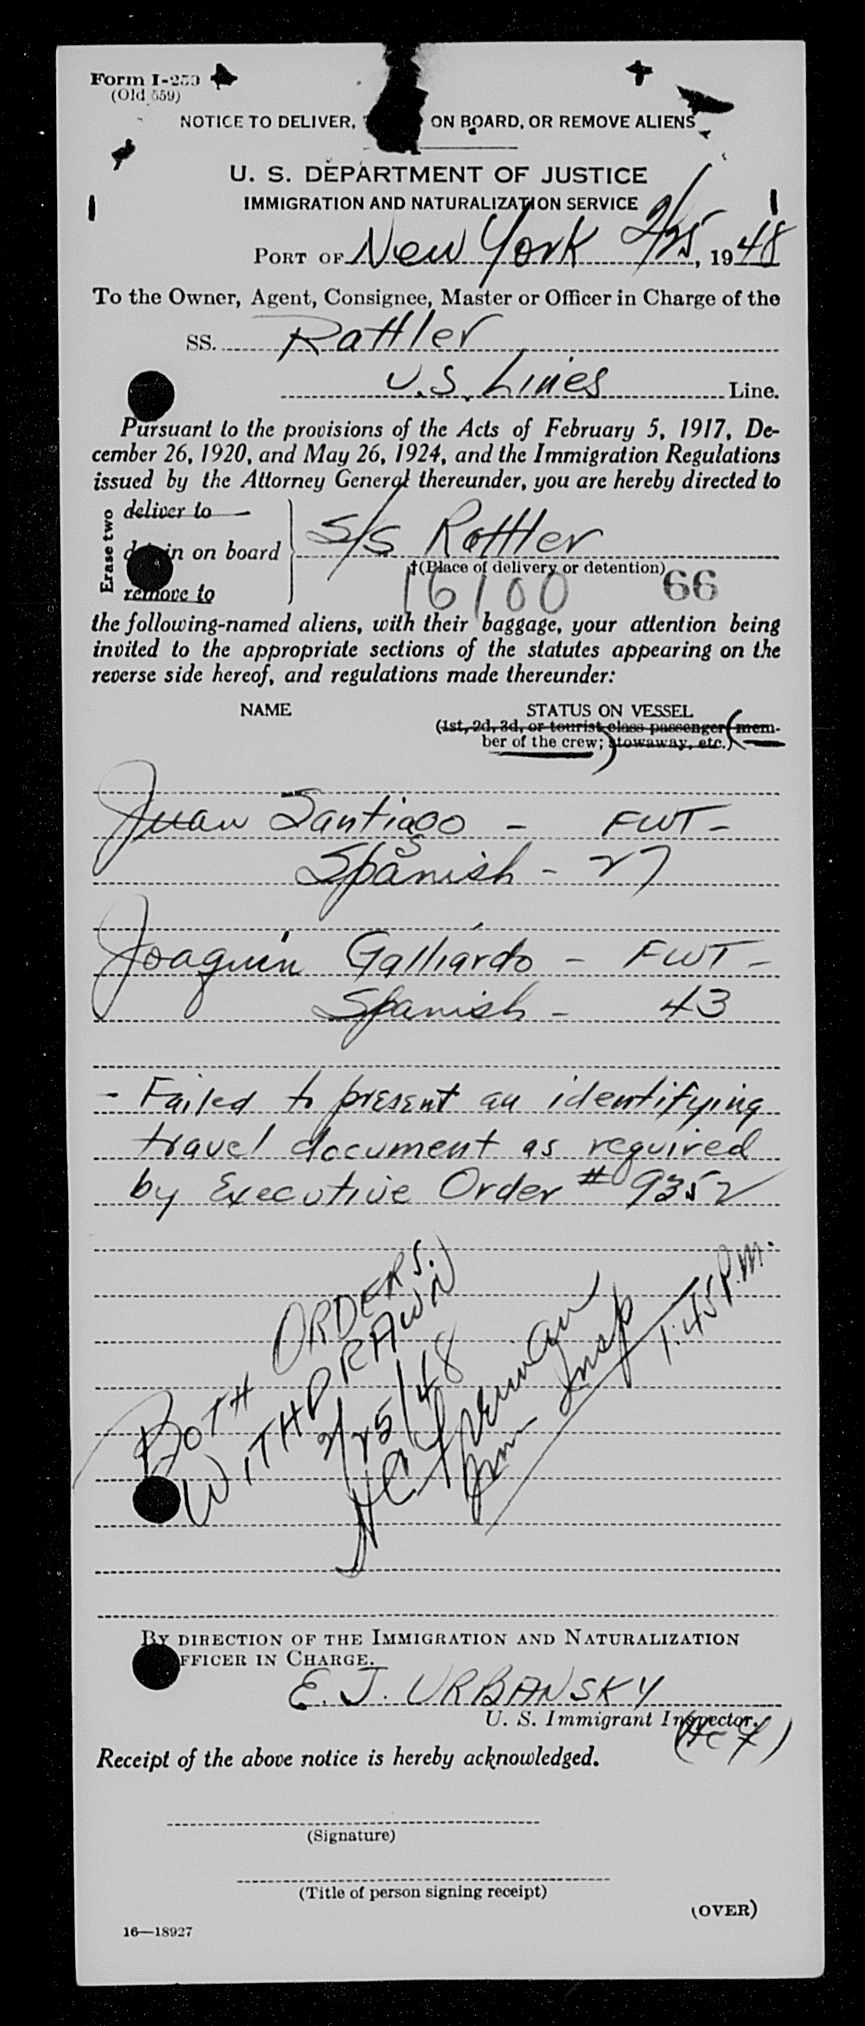 Form I-259
(Old 559)
NOTICE TO DELIVER, ON BOARD, OR REMOVE ALIENS
U. S. DEPARTMENT OF JUSTICE
IMMIGRATION AND NATURALIZATION SERVICE
PORT OF New York 2/25, 1948
To the Owner, Agent, Consignee, Master or Officer in Charge of the
SS. Rattler
U.S. Lines Line.
Pursuant to the provisions of the Acts of February 5, 1917, De-
cember 26, 1920, and May 26, 1924, and the Immigration Regulations
issued by the Attorney General thereunder, you are hereby directed to
Erase two
deliver to
in on board S/S Rattler
†(Place of delivery or detention)
remove to
16100 66
the following-named aliens, with their baggage, your attention being
invited to the appropriate sections of the statutes appearing on the
reverse side hereof, and regulations made thereunder:
NAME STATUS ON VESSEL
(1st, 2d, 3d, or tourist class passenger (mem-
ber of the crew; stowaway, etc.)
Juan Santiago - FWT -
Spanish - 27
Joaquin Galliardo - FWT -
Spanish - 43
- Failed to present an identifying
travel document as required
by Executive Order # 9352
BOTH ORDERS
WITHDRAWN
2/25/48
Imm Insp 1:45 P.M.
BY DIRECTION OF THE IMMIGRATION AND NATURALIZATION
OFFICER IN CHARGE.
E. J. URBANSKY
U. S. Immigrant Inspector.
Receipt of the above notice is hereby acknowledged.
(Signature)
(Title of person signing receipt)
(OVER)
16—18927